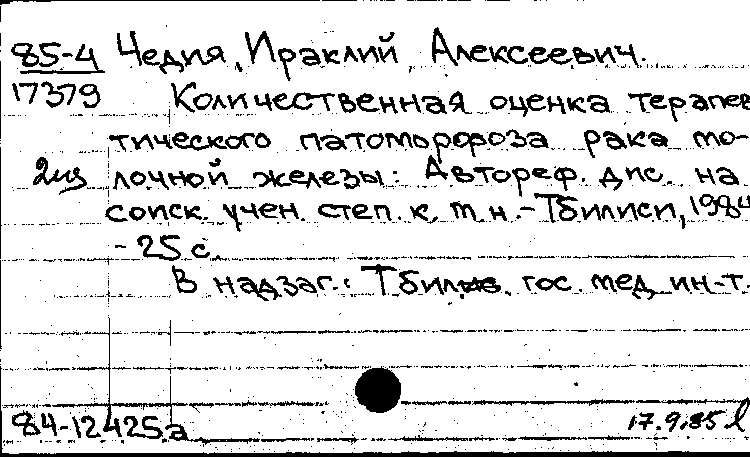 85-4 Чедия, Ираклий Алексеевич.
17379 Количественная оценка терапев
тического патоморфоза рака мо-
2из лочной железы: Автореф. дис. на
соиск. учен. степ. к. м. н. - Тбилиси, 1984
- 25 с.
В надзаг.: Тбилис. гос. мед. ин-т.
84-12425а 17.9.85